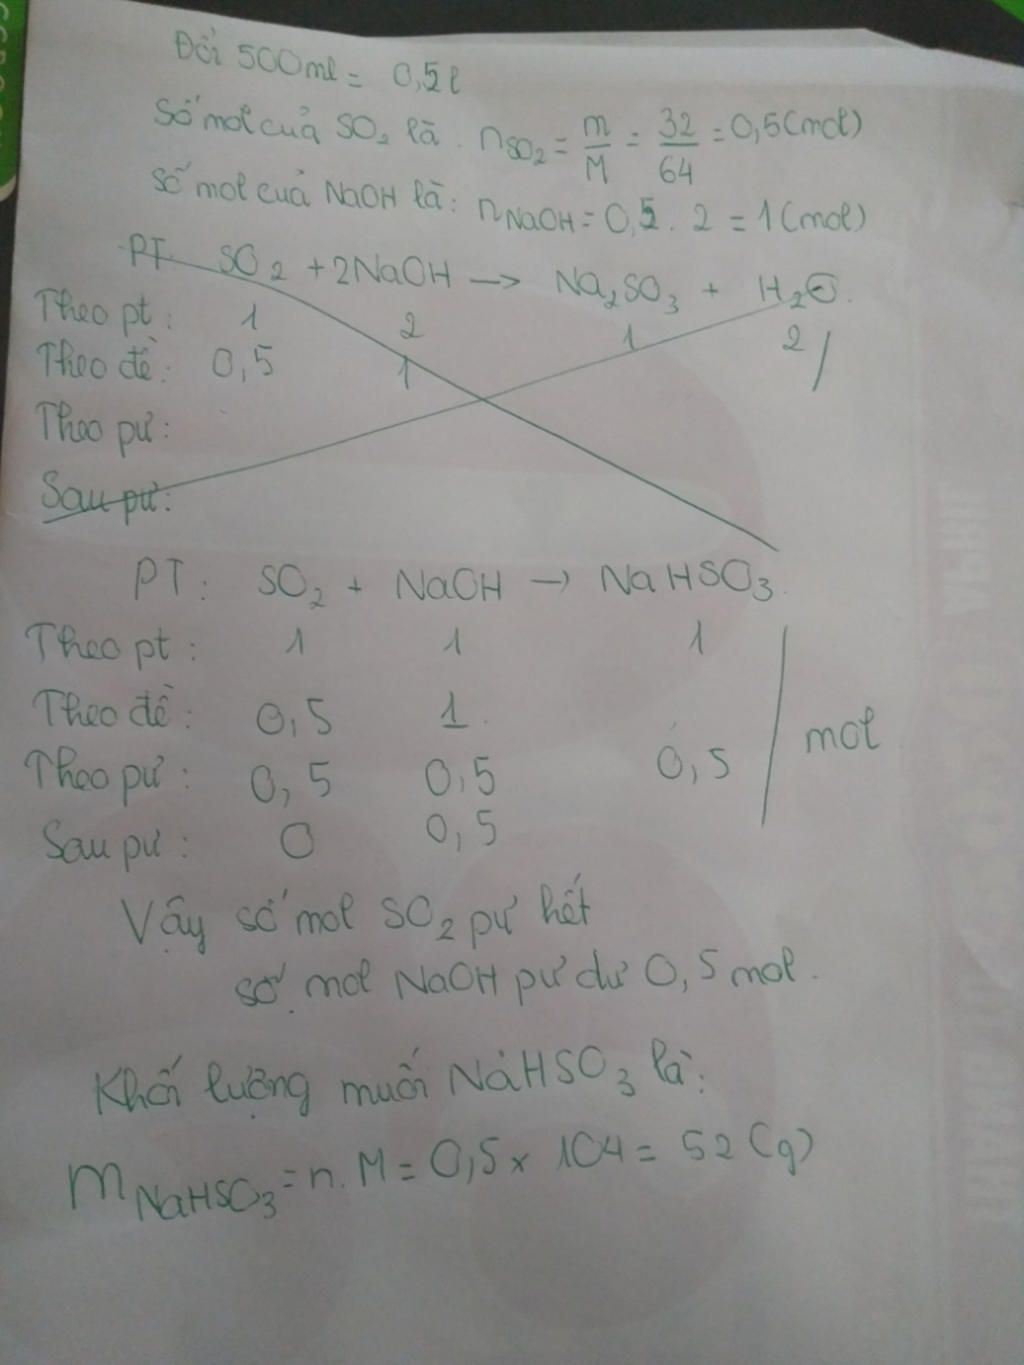 Đổi 500ml = 0,5l
Số mol của SO₂ là : nSO₂ = m/M = 32/64 = 0,5(mol)
Số mol của NaOH là : nNaOH = 0,5 . 2 = 1(mol)
PT: SO₂ + 2NaOH → Na₂SO₃ + H₂O.
Theo pt : 1 2 1 2
Theo đề : 0,5 1
Theo pư :
Sau pư :
PT : SO₂ + NaOH → NaHSO₃.
Theo pt : 1 1 1
Theo đề : 0,5 1 mol
Theo pư : 0,5 0,5 0,5
Sau pư : 0 0,5
Vậy số mol SO₂ pư hết
số mol NaOH pư dư 0,5 mol.
Khối lượng muối NaHSO₃ là :
mNaHSO₃ = n. M = 0,5 x 104 = 52 (g)